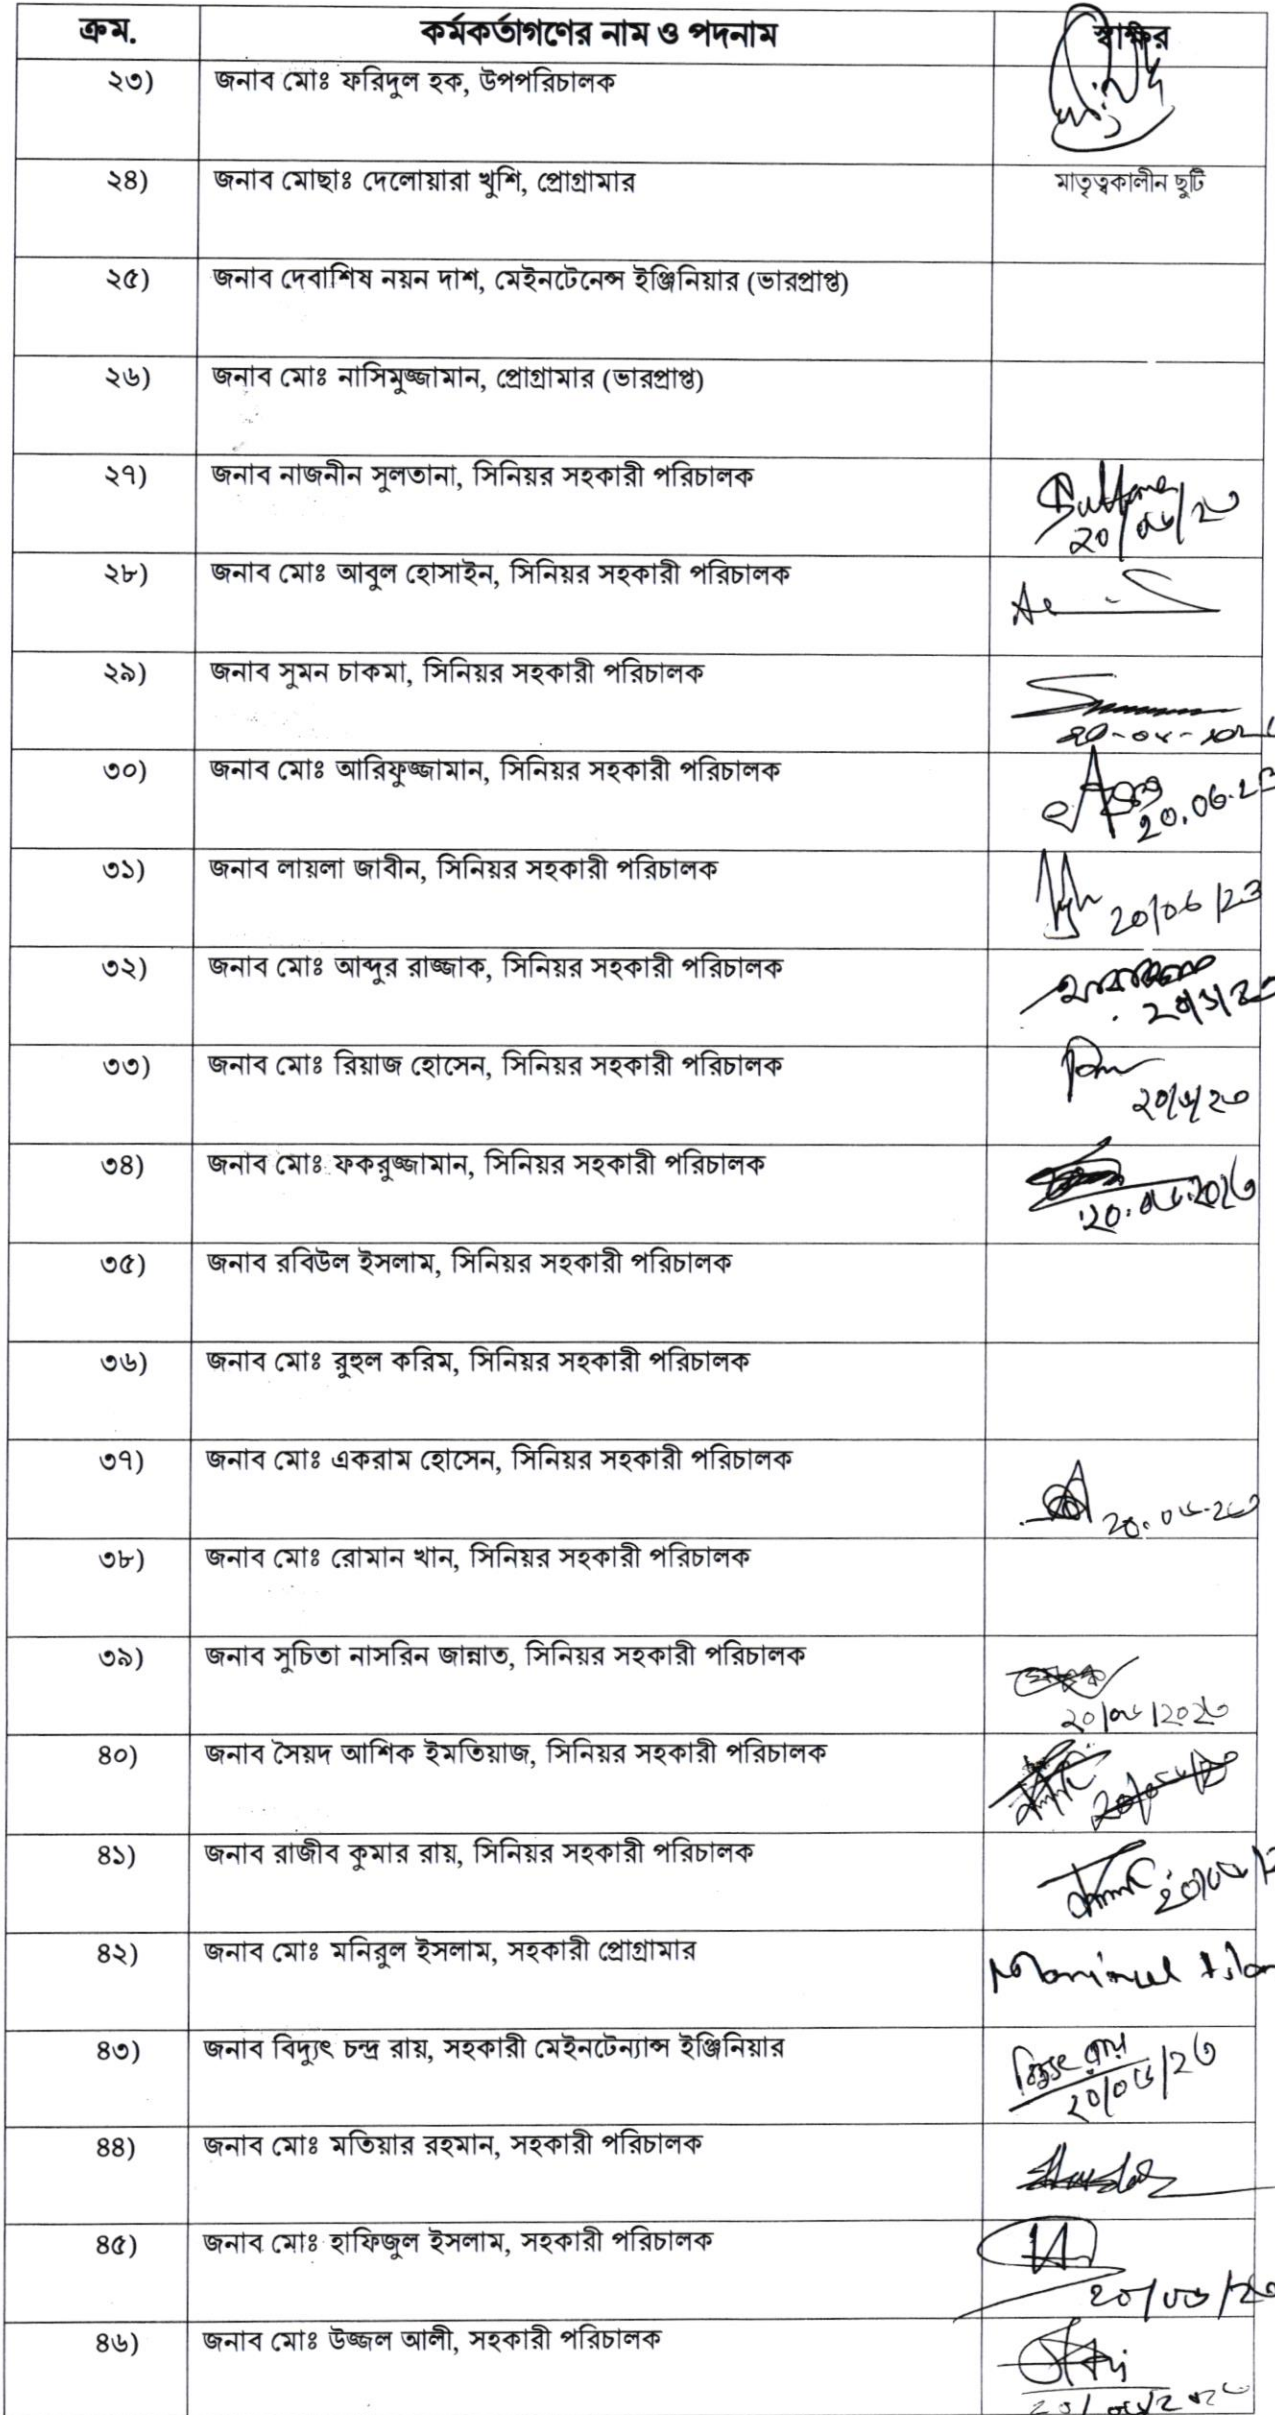 ক্রম. কর্মকর্তাগণের নাম ও পদনাম স্বাক্ষর
২৩) জনাব মোঃ ফরিদুল হক, উপপরিচালক
২৪) জনাব মোছাঃ দেলোয়ারা খুশি, প্রোগ্রামার মাতৃত্বকালীন ছুটি
২৫) জনাব দেবাশিষ নয়ন দাশ, মেইনটেনেন্স ইঞ্জিনিয়ার (ভারপ্রাপ্ত)
২৬) জনাব মোঃ নাসিমুজ্জামান, প্রোগ্রামার (ভারপ্রাপ্ত)
২৭) জনাব নাজনীন সুলতানা, সিনিয়র সহকারী পরিচালক Sultana
২০/০৬/২৩
২৮) জনাব মোঃ আবুল হোসাইন, সিনিয়র সহকারী পরিচালক
২৯) জনাব সুমন চাকমা, সিনিয়র সহকারী পরিচালক
৩০) জনাব মোঃ আরিফুজ্জামান, সিনিয়র সহকারী পরিচালক
20.06.23
৩১) জনাব লায়লা জাবীন, সিনিয়র সহকারী পরিচালক 20/06/23
৩২) জনাব মোঃ আব্দুর রাজ্জাক, সিনিয়র সহকারী পরিচালক
৩৩) জনাব মোঃ রিয়াজ হোসেন, সিনিয়র সহকারী পরিচালক
২০/৬/২৩
৩৪) জনাব মোঃ ফকরুজ্জামান, সিনিয়র সহকারী পরিচালক
২০.০৬.২০২৩
৩৫) জনাব রবিউল ইসলাম, সিনিয়র সহকারী পরিচালক
৩৬) জনাব মোঃ রুহুল করিম, সিনিয়র সহকারী পরিচালক
৩৭) জনাব মোঃ একরাম হোসেন, সিনিয়র সহকারী পরিচালক
২০.০৬.২৩
৩৮) জনাব মোঃ রোমান খান, সিনিয়র সহকারী পরিচালক
৩৯) জনাব সুচিতা নাসরিন জান্নাত, সিনিয়র সহকারী পরিচালক
২০/০৬/২০২৩
৪০) জনাব সৈয়দ আশিক ইমতিয়াজ, সিনিয়র সহকারী পরিচালক
৪১) জনাব রাজীব কুমার রায়, সিনিয়র সহকারী পরিচালক
৪২) জনাব মোঃ মনিরুল ইসলাম, সহকারী প্রোগ্রামার Monirul Islam
৪৩) জনাব বিদ্যুৎ চন্দ্র রায়, সহকারী মেইনটেন্যান্স ইঞ্জিনিয়ার বিদ্যুৎ রায়
২০/০৬/২৩
৪৪) জনাব মোঃ মতিয়ার রহমান, সহকারী পরিচালক
৪৫) জনাব মোঃ হাফিজুল ইসলাম, সহকারী পরিচালক
২০/০৬/২৩
৪৬) জনাব মোঃ উজ্জল আলী, সহকারী পরিচালক
২০/০৬/২০২৩